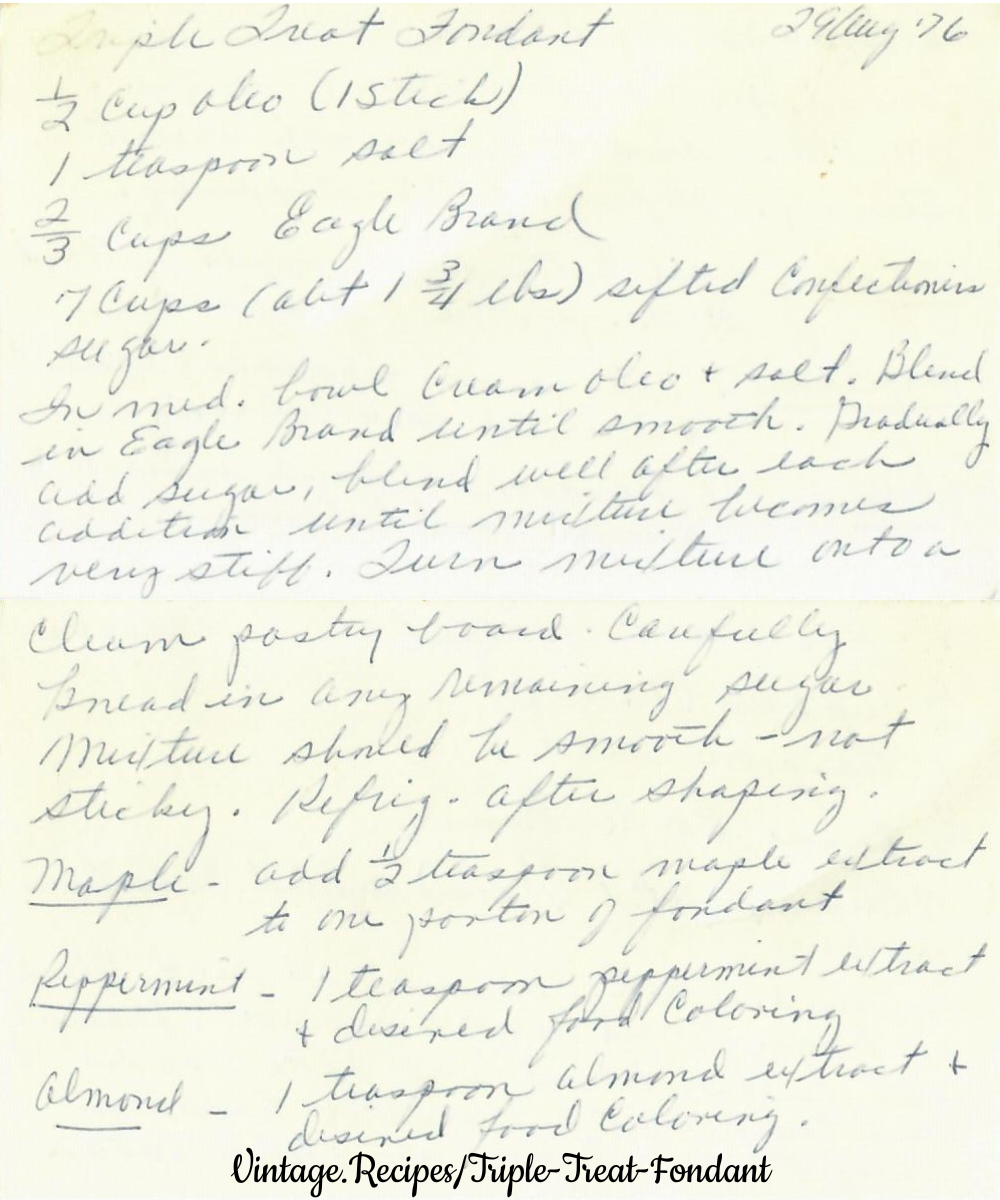 Triple Treat Fondant 29/Aug '76
1/2 Cup oleo (1 Stick)
1 teaspoon salt
2/3 Cups Eagle Brand
7 Cups (abt 1 3/4 lbs) sifted Confectioners
sugar.
In med. bowl Cream oleo + salt. Blend
in Eagle Brand until smooth. Gradually
add sugar, blend well after each
addition until mixture becomes
very stiff. Turn mixture onto a
Clean pastry board. Carefully
knead in any remaining sugar
Mixture should be smooth - not
sticky. Refrig. after shaping.
Maple - add 1/2 teaspoon maple extract
to one portion of fondant
Peppermint - 1 teaspoon peppermint extract
+ desired food Coloring
Almond - 1 teaspoon almond extract +
desired food Coloring.
Vintage.Recipes/Triple-Treat-Fondant